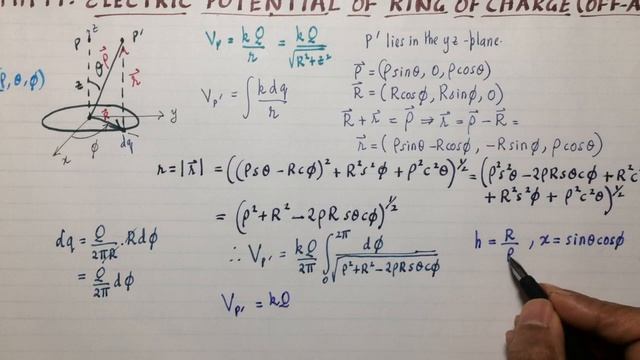 ELECTRIC POTENTIAL OF RING OF CHARGE (OFF-A
z
P P'
θ ρ⃗ r⃗
z
(ρ, θ, φ)
R⃗ y
x φ dq
V_P = kQ/r = kQ/√(R²+z²)
V_P' = ∫ k dq/r
P' lies in the yz-plane.
ρ⃗ = (ρsinθ, 0, ρcosθ)
R⃗ = (Rcosφ, Rsinφ, 0)
R⃗ + r⃗ = ρ⃗ ⇒ r⃗ = ρ⃗ - R⃗ =
r⃗ = (ρsinθ - Rcosφ, -Rsinφ, ρcosθ)
r = |r⃗| = ((ρsθ - Rcφ)² + R²s²φ + ρ²c²θ)^1/2 = (ρ²s²θ - 2ρRsθcφ + R²c²
+ R²s²φ + ρ²c²θ)^1/2
= (ρ² + R² - 2ρRsθcφ)^1/2
dq = Q/2πR · Rdφ
= Q/2π dφ
∴ V_P' = kQ/2π ∫₀^2π dφ/√(ρ²+R²-2ρRsθcφ)
h = R/ρ , x = sinθcosφ
V_P' = kQ